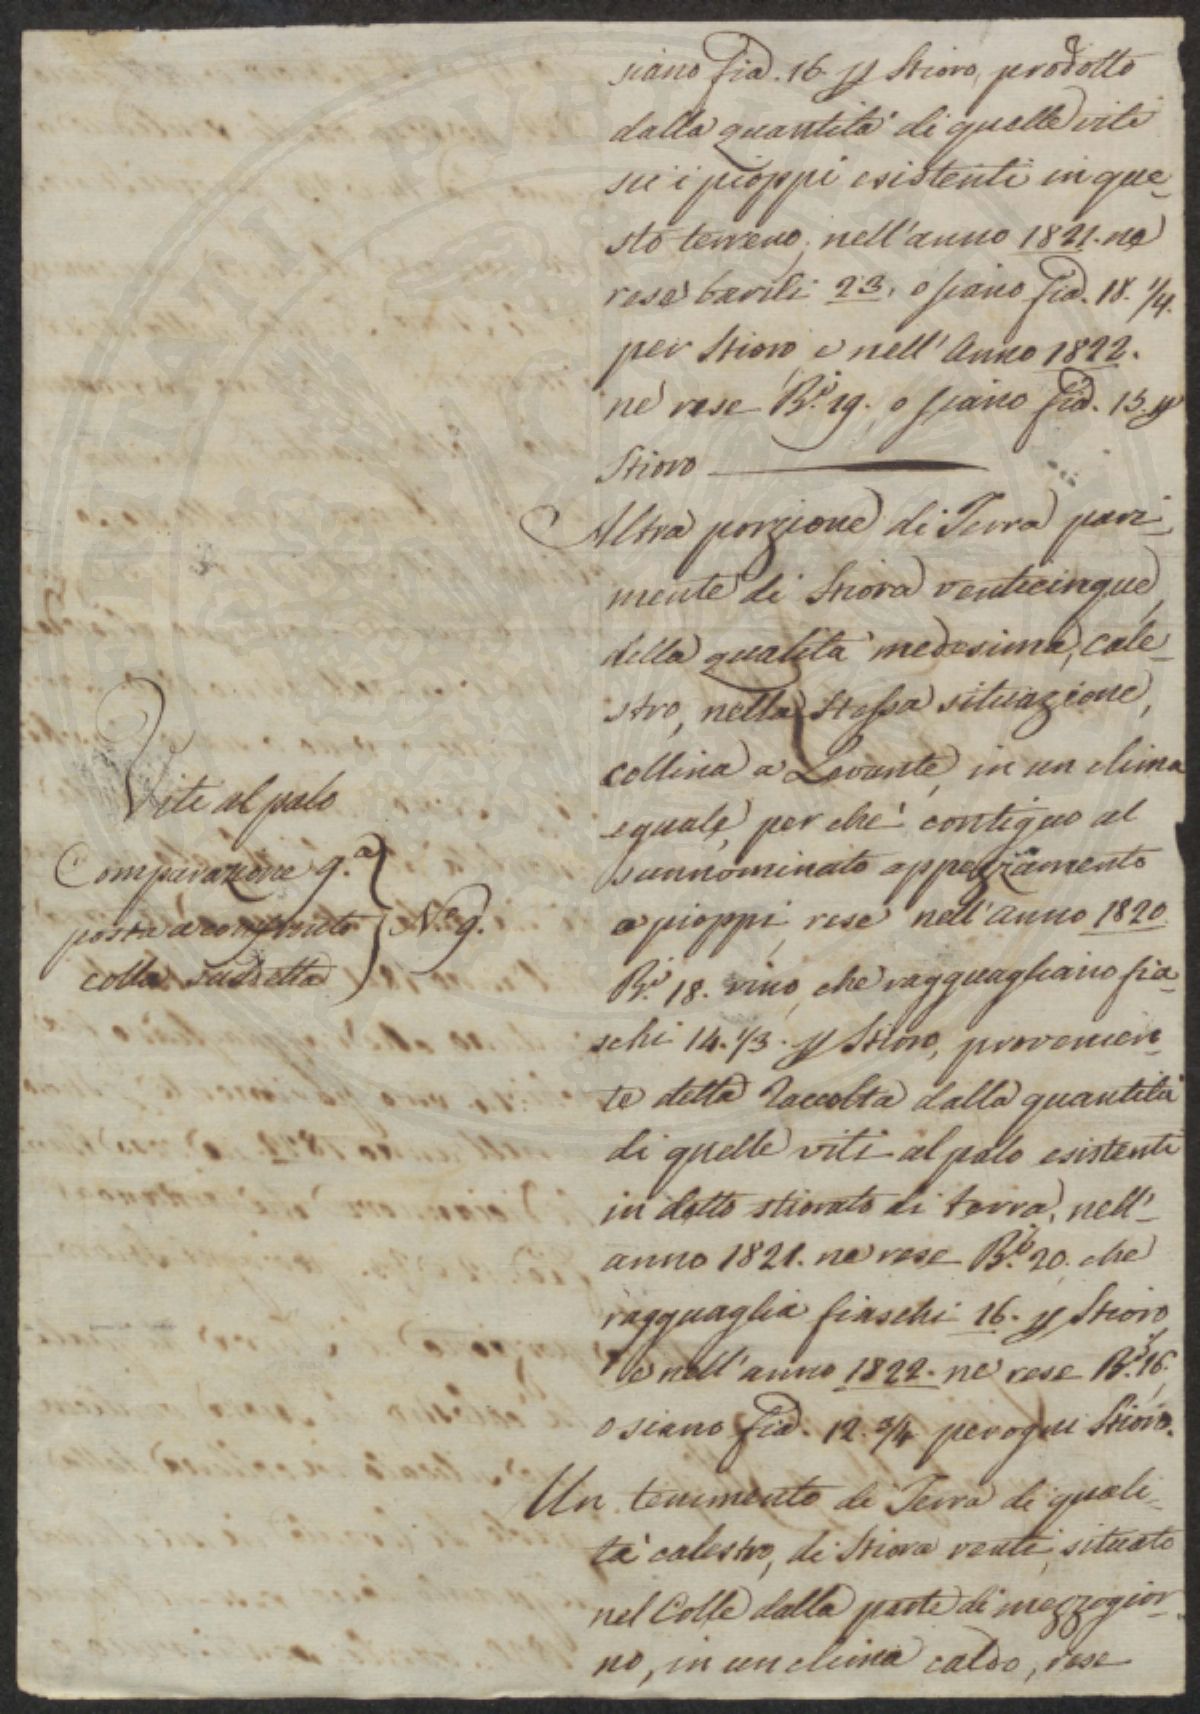 siano fia. 16. p Stioro, prodotto
dalla quantità di quelle viti
su i pioppi esistenti in que-
sto terreno, nell'anno 1821. ne
rese barili 23, o siano fia. 18. 1/4.
per Stioro, e nell'Anno 1822.
ne rese B.i 19., o siano fia. 15. p
Stioro
Altra porzione di Terra pari-
mente di Stiora venticinque,
della qualità medesima, cale-
stro, nella stessa situazione,
collina a Levante, in un clima
eguale, per chè contiguo al
sunnominato appezzamento
a pioppi, rese nell'anno 1820
B.i 18. vino, che ragguagliano fia-
schi 14. 1/3. p Stioro, provenien-
te detta Raccolta dalla quantità
di quelle viti al palo esistenti
in detto stiorato di terra, nell'-
anno 1821. ne rese B.i 20. che
ragguaglia fiaschi 16. p Stioro,
e nell'anno 1822. ne rese B.i 16.
o siano fia. 12. 3/4 per ogni Stioro.
Un tenimento di Terra di quali-
tà calestro, di Stiora venti, situato
nel Colle dalla parte di mezzogior-
no, in un clima caldo, rese
Vite al palo
Comparazione 9.a
posta a confronto N.o 9.
colla suddetta